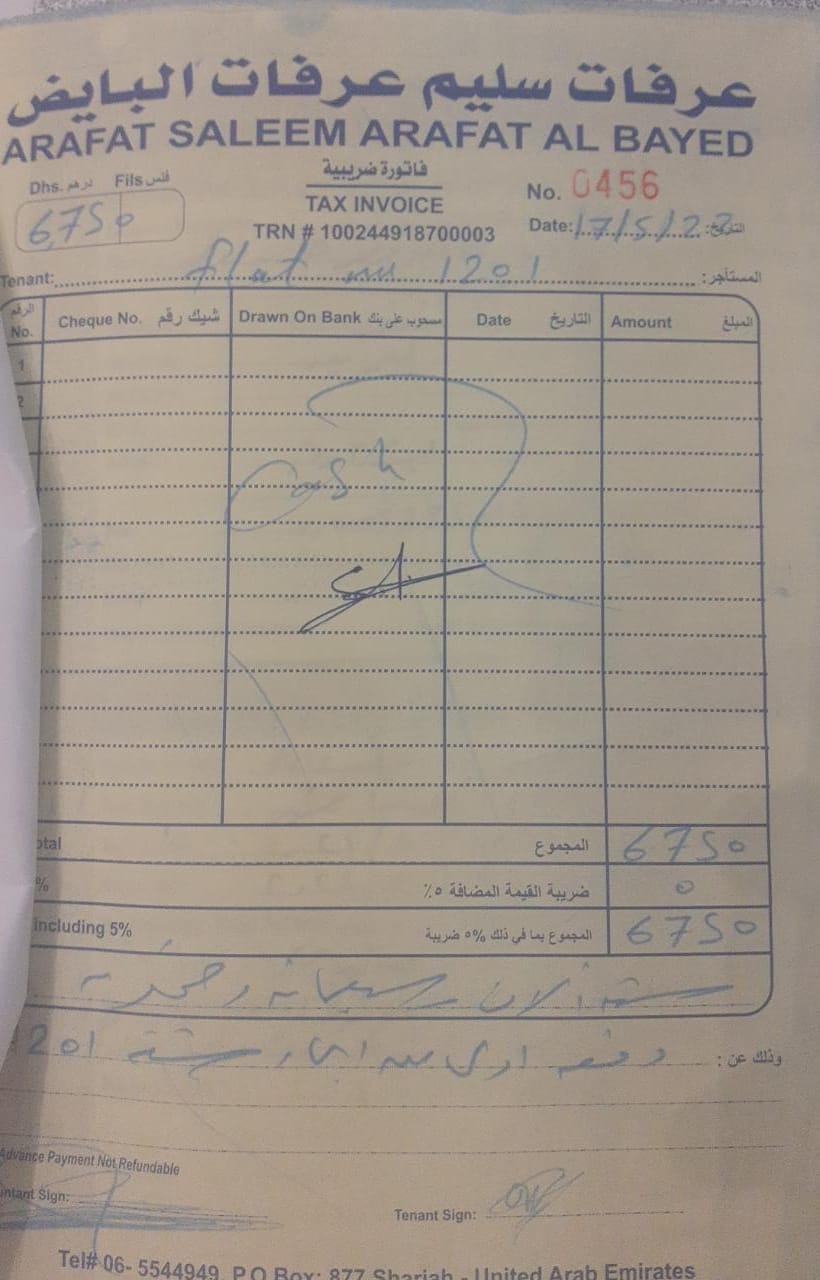 عرفات سليم عرفات البايض
ARAFAT SALEEM ARAFAT AL BAYED
Dhs. درهم Fils فلس
فاتورة ضريبية
No. 0456
6,750
TAX INVOICE
TRN # 100244918700003
Date: 17/5/22 التاريخ:
Tenant: flat no 1201 المستأجر:
الرقم No. Cheque No. شيك رقم Drawn On Bank مسحوب على بنك Date التاريخ Amount المبلغ
1
2
Cash
otal المجموع 6750
% ضريبة القيمة المضافة ٥٪ 0
including 5% المجموع بما في ذلك ٥% ضريبة 6750
ستة آلاف وسبعمائة وخمسون
وذلك عن: دفعه اولى من ايجار شقة 1201
Advance Payment Not Refundable
ntant Sign:
Tenant Sign:
Tel# 06- 5544949 P.O Box: 877 Sharjah - United Arab Emirates